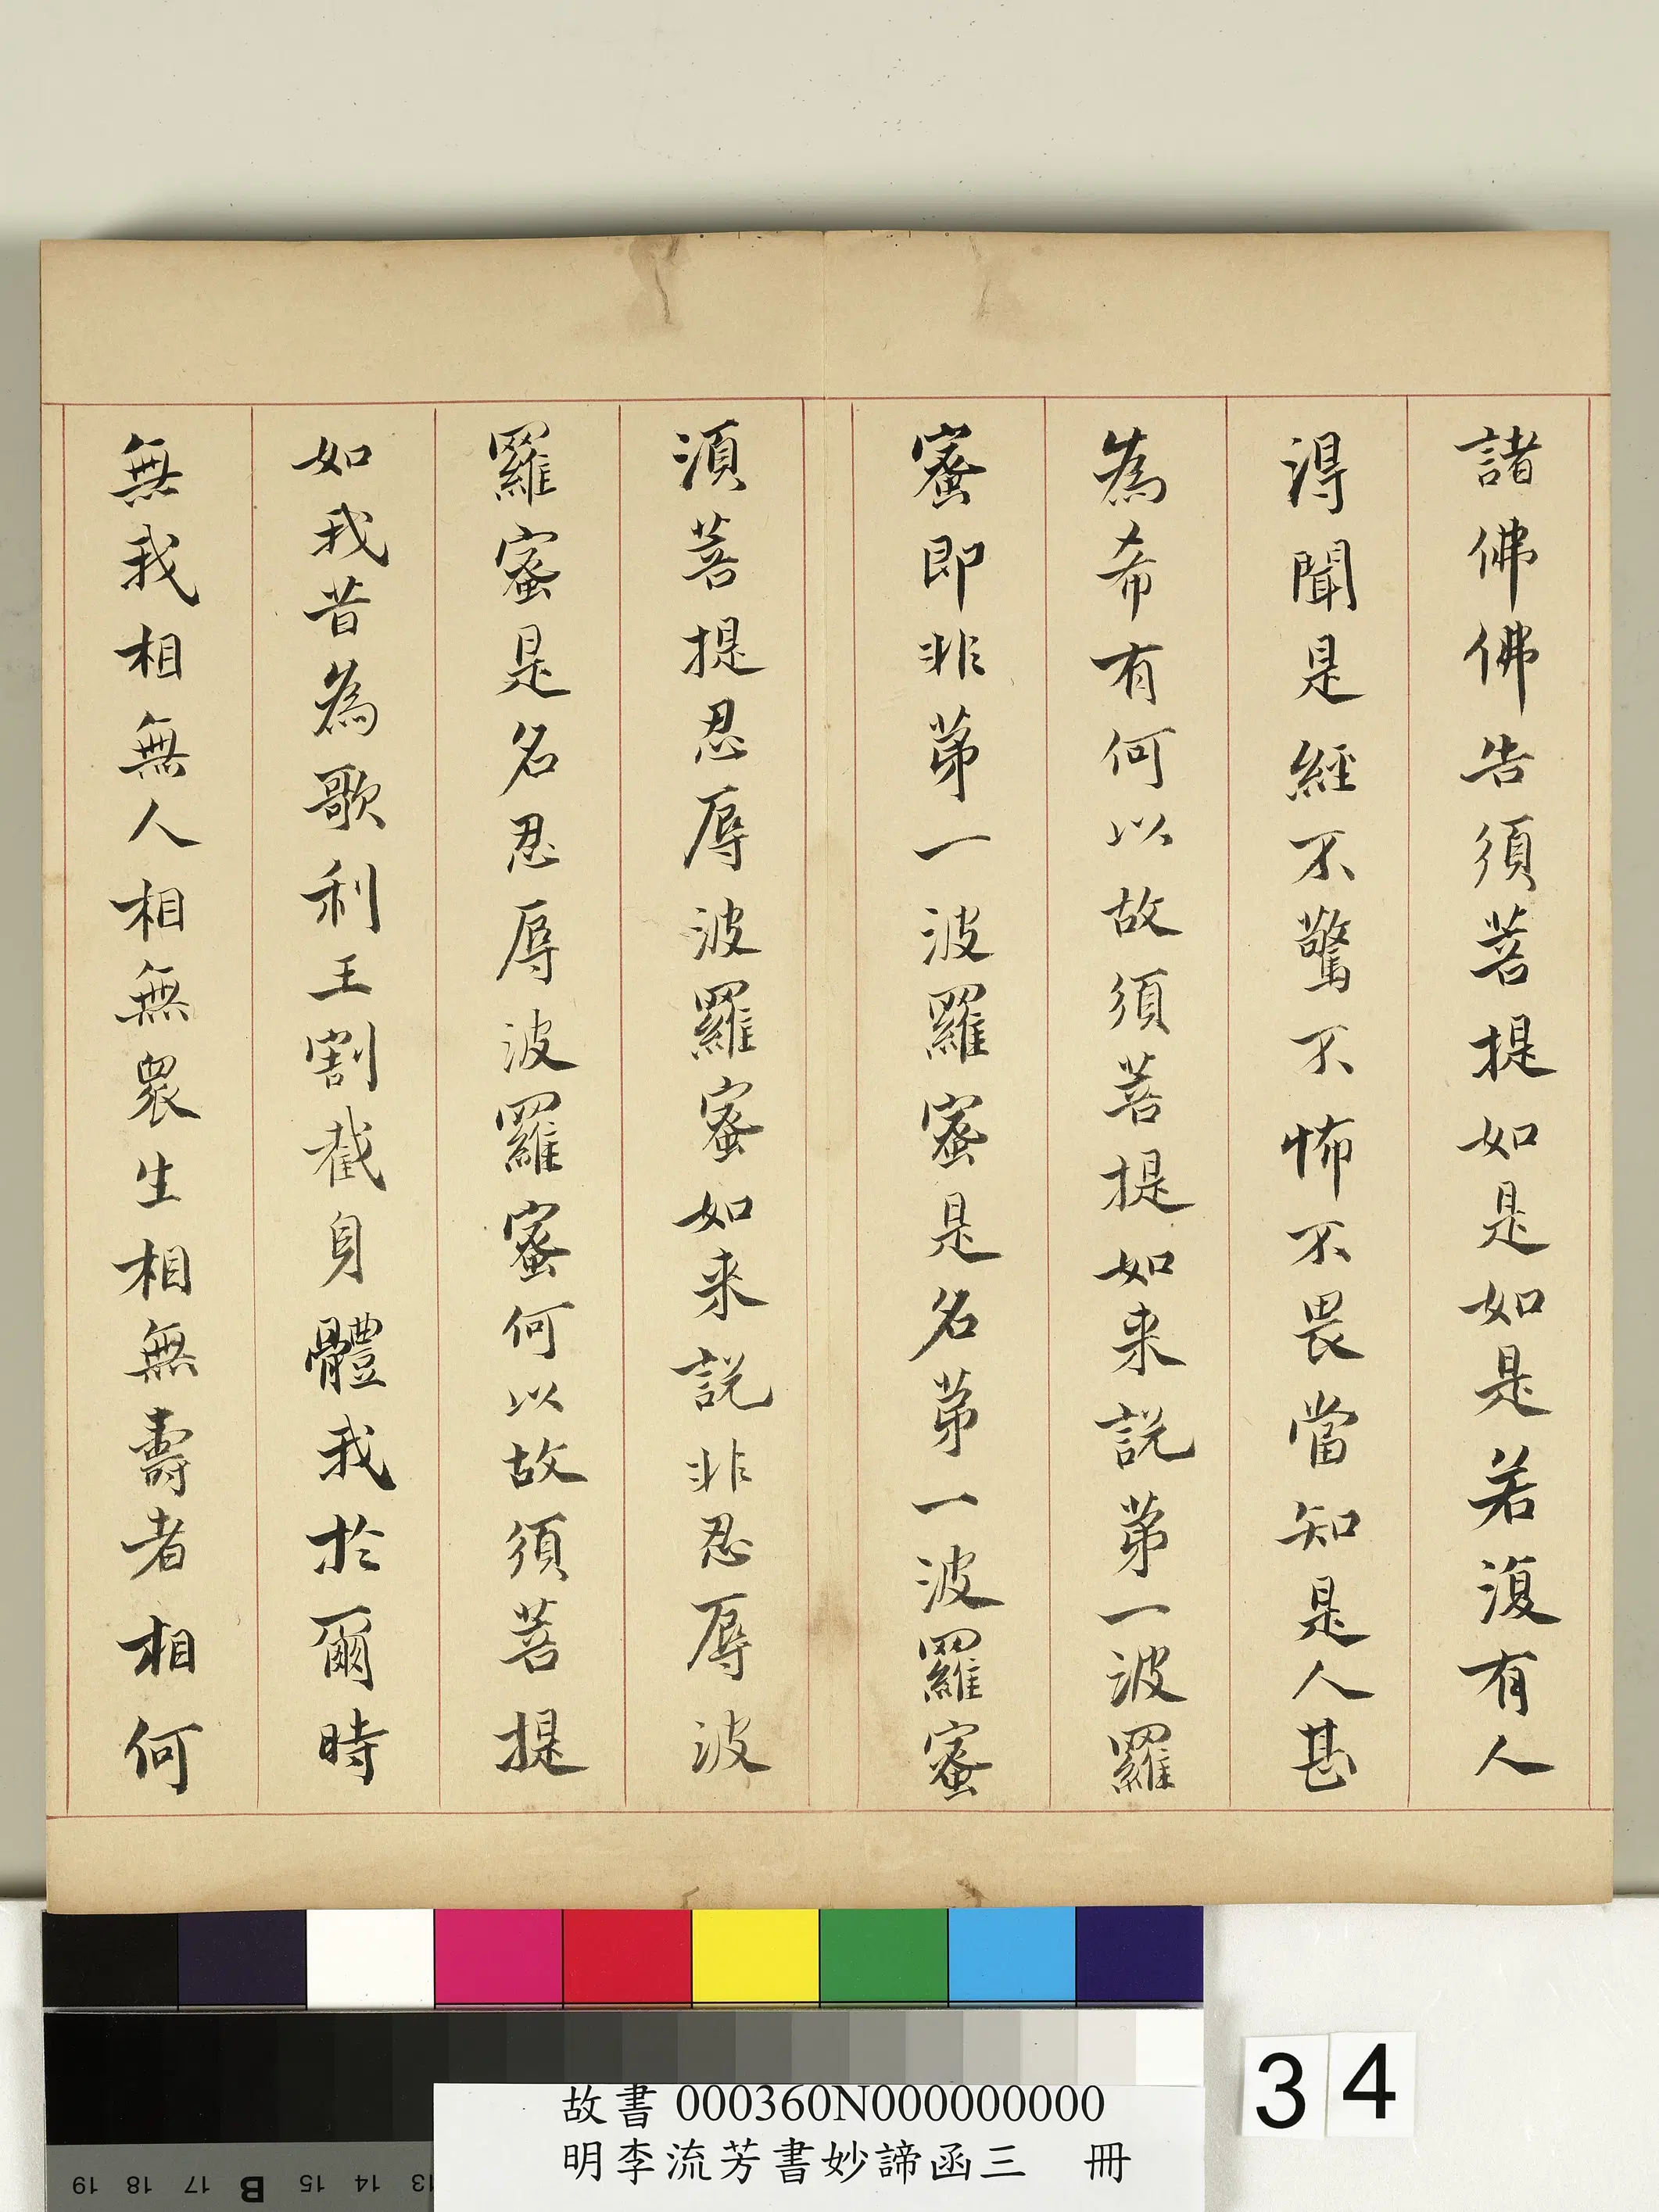 諸佛佛告須菩提如是如是若復有人
得聞是經不驚不怖不畏當知是人甚
為希有何以故須菩提如来說苐一波羅
蜜即非苐一波羅蜜是名苐一波羅蜜
湏菩提忍辱波羅蜜如来說非忍辱波
羅蜜是名忍辱波羅蜜何以故須菩提
如我昔為歌利王割截身體我於爾時
無我相無人相無衆生相無壽者相何
34
故書 000360N000000000
明李流芳書妙諦函三 冊
19 18 17 B 15 14 13